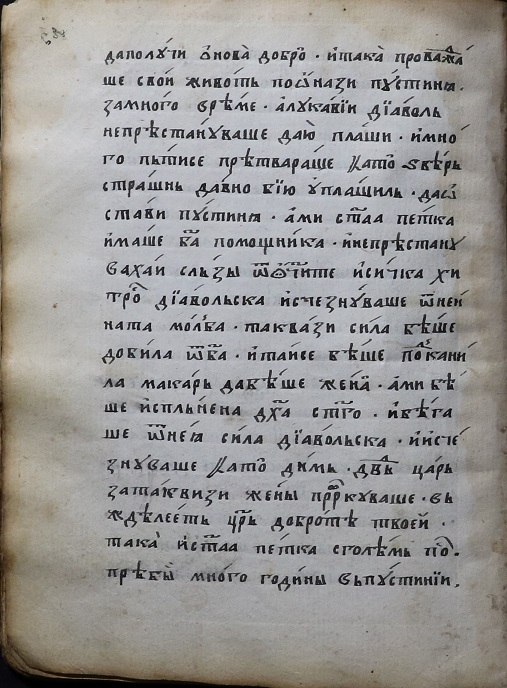 даполу́чи ѻ҆́нова̀ добро̀ · и҆така̀ прова́жⷣа
ше сво́и живо́ть посѡ҆на́зи пꙋсти́нꙗ ·
замно́го вре́ме · а҆лꙋка́вїи дїа́воль
непрѣста́нꙋваше даю̀ пла́ши · и҆мно́
го пь́тисе прѣтвара́ше ꙗ҆като̀ ѕвѣ́рь
стра́шнь да́вно бїю ᲂу҆пла́шиль · дасѡ҆
ста́ви пꙋсти́нꙗ · а҆́ми ст҃аа пе́тка
и҆ма́ше бг҃а помощни́ка · и҆непрѣста́нꙋ
ваха́и сль́зы ѿѻ҆чи́те и҆си́чка хи
тро́ дїа́вольска и҆счезнꙋваше ѿне́и
ната моли́тва · такваѕи си́ла бѣ́ше
доби́ла ѿбг҃а · и҆та́исе бѣ́ше пока́ни
ла мака́рь давѣ́ше жена̀ · а҆ми бѣ́
ше и҆спль́нена дх҃а ст҃го · и҆бѣ́га
ше ѿне́ꙗ си́ла дїа́вольска · и҆и҆сче́
знꙋваше ꙗ҆като̀ ди́мь · дв҃дь ца́рь
затакви́зи жены̀ прⷪ҇ркꙋваше · вь
ждѣлее́ть цр҃ь добро́тѣ твое́й ·
така̀ и҆ст҃аа пе́тка сголѣ́мь по ·
прѣбы̀ мно́го годи́ны вьпꙋсти́нїи ·